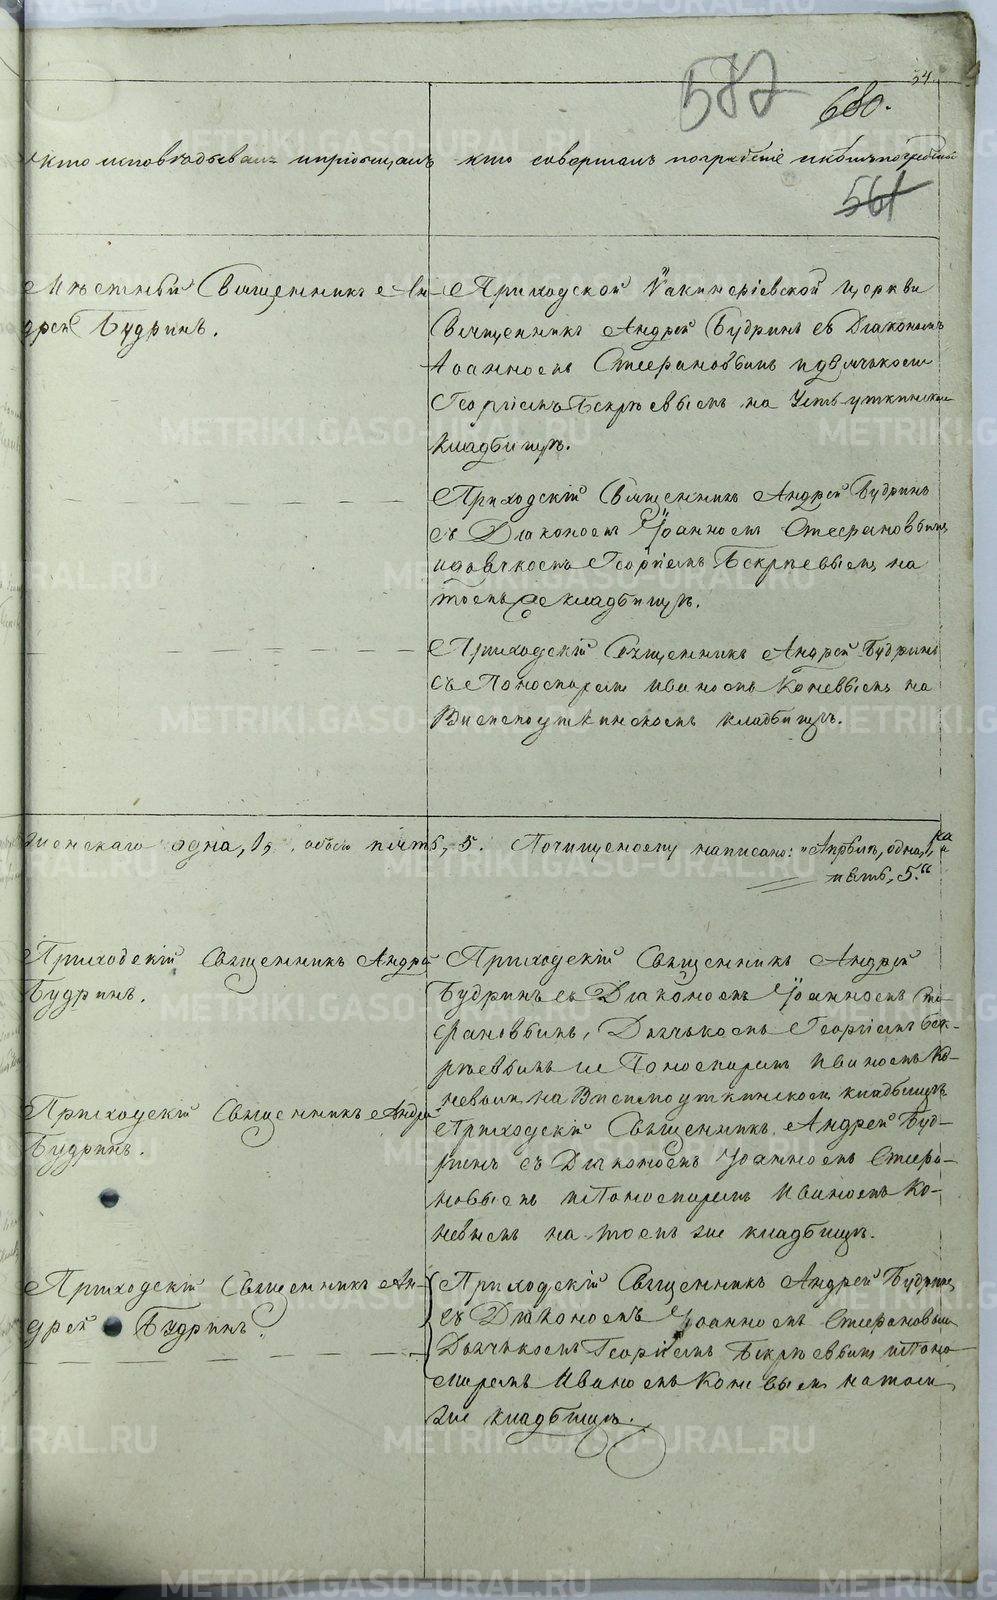 34.
587
680.
Кто исповѣдывалъ и пріобщалъ
Кто совершалъ погребеніе и гдѣ погребены
561
Мѣстный Священникъ Ан-
дрей Будринъ.
Приходской Іакинѳіевской церкви
Священникъ Андрей Будринъ съ Діакономъ
Іоанномъ Стефановымъ и дьячкомъ
Георгіемъ Бскрѣевымъ на Устьуткинском
кладбищѣ.
Приходскій Священникъ Андрей Будринъ
съ Діакономъ Іоанномъ Стефановымъ
и дьячкомъ Георгіемъ Бскрѣевымъ на
томъ же кладбищѣ.
Приходскій Священникъ Андрей Будринъ
съ Пономаремъ Иваномъ Коневымъ на
Висимоуткинскомъ кладбищѣ.
женскаго одна, 1, обоего пять, 5. По чищеному написано: „Апрѣль, одна, 1,
пять, 5.“
Приходскій Священникъ Андрей
Будринъ.
Приходскій Священникъ Андрей
Будринъ съ Діакономъ Іоанномъ Сте-
фановымъ, Дьячкомъ Георгіемъ Бск-
рѣевымъ и Пономаремъ Иваномъ Ко-
невымъ на Висимоуткинском кладбищѣ
Приходскій Священникъ Андрей
Будринъ.
Приходскій Священникъ Андрей Буд-
ринъ съ Діакономъ Іоанномъ Стефа-
новымъ и Пономаремъ Иваномъ Ко-
невымъ на томъ же кладбищѣ.
Приходскій Священникъ Ан-
дрей Будринъ.
Приходскій Священникъ Андрей Будринъ
съ Діакономъ Іоанномъ Стефановым
Дьячкомъ Георгіемъ Бскрѣевымъ и Поно
маремъ Иваномъ Коневымъ на том
же кладбищѣ.
METRIKI.GASO-URAL.RU